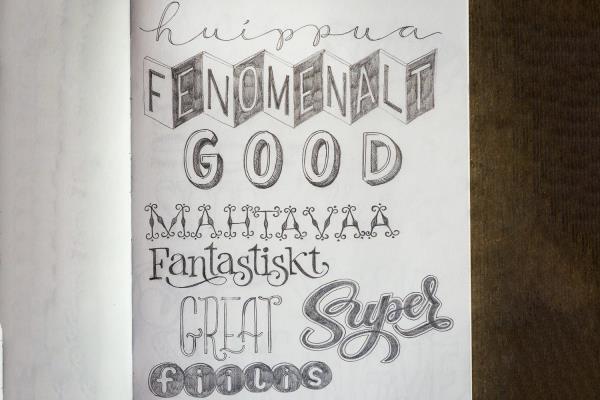 huippua
FENOMENALT
GOOD
MAHTAVAA
Fantastiskt
GREAT Super
fiilis